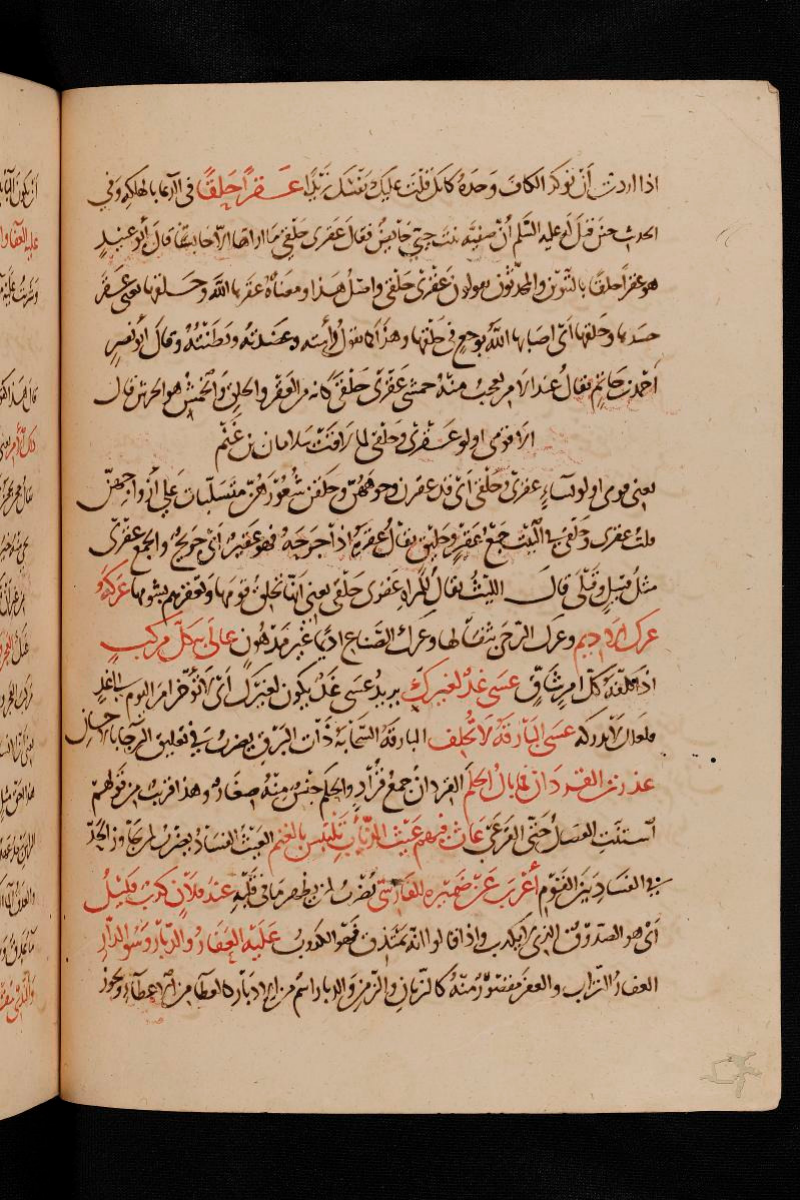 اذا اردت أن تؤكد الكاف وحده كانك قلت عليك نفسك زيدًا عَقْرًا حَلْقًا في الدعاء بالهلكه وفي
الحديث حين قيل له عليه السَّلم أن صفيه بنت حيي حائض فقال عقرى حلقى ما اراها الا حابستنا قال أبو عبيد
هو عقرًا حلقًا بالتنوين والمحدثون يقولون عقرى حلقى واصل هذا ومعناه عقرها الله وحلقها يعني عقر
جسدها وحلقها أي اصابها الله بوجع في حلقها وهذا كما تقول رأسته وعضدته وبطنته وقال أبو نصر
أحمد بن حاتم يقال عند الامر يعجب منه خمشى عقرى حلقى كانه من العقر والحلق والخمش هو الخدش قال
الا قومي اولو عقرى وحلقى لما لاقت سلامان بن غنم
يعني قومي اولو نساء عقرى وحلقى أي قد عقرن وجوههن وحلقن شعورهن متسلبات علي أزواجهن
قلت عقرى وحلقى في البيت جمع عقير وحليق يقال عقره اذا جرحه فهو عقير أي جريح والجمع عقرى
مثل قتيل وقتلى قال الليث يقال للمراه عقرى حلقى يعني انها تحلق قومها وتعقرهم بشومها عركه
عرك الاديم وعرك الرحى بثفالها وعرك الصناع اديمًا غير مدهون على به كل مركب
اذا كلفه كل امر شاق عسى غدٌ لغيرك يريد عسى غد يكون لغيرك أي لا تؤخر امر اليوم الي غد
فلعلك لا تدركه عسى البارقه لا تخلف البارقه السحابه ذات البرق يضرب في تعليق الرجاء بالاحسان
عذرت القردان فما بال الحلم القردان جمع قراد والحلم جنس منه صغار وهذا قريب من قولهم
استنت الفصال حتى القرعى عاث فيهم عيث الذئاب يلتبس بالغنم العيث الفساد يضرب لمن يجاوز الحد
في الفساد بين القوم أعرب عن ضميره الفارسي يضرب لمن يظهر ما في قلبه عند فلان كذب قليل
أي هو الصدوق الذي لا يكذب واذا قالوا انه يمتذق فهو الكذوب عليه العفار والدبار وسوء الدار
العفار التراب والعفر مقصور منه كالزمان والزمن والدبار اسم من الادبار كالعطاء من الاعطاء ويجوز